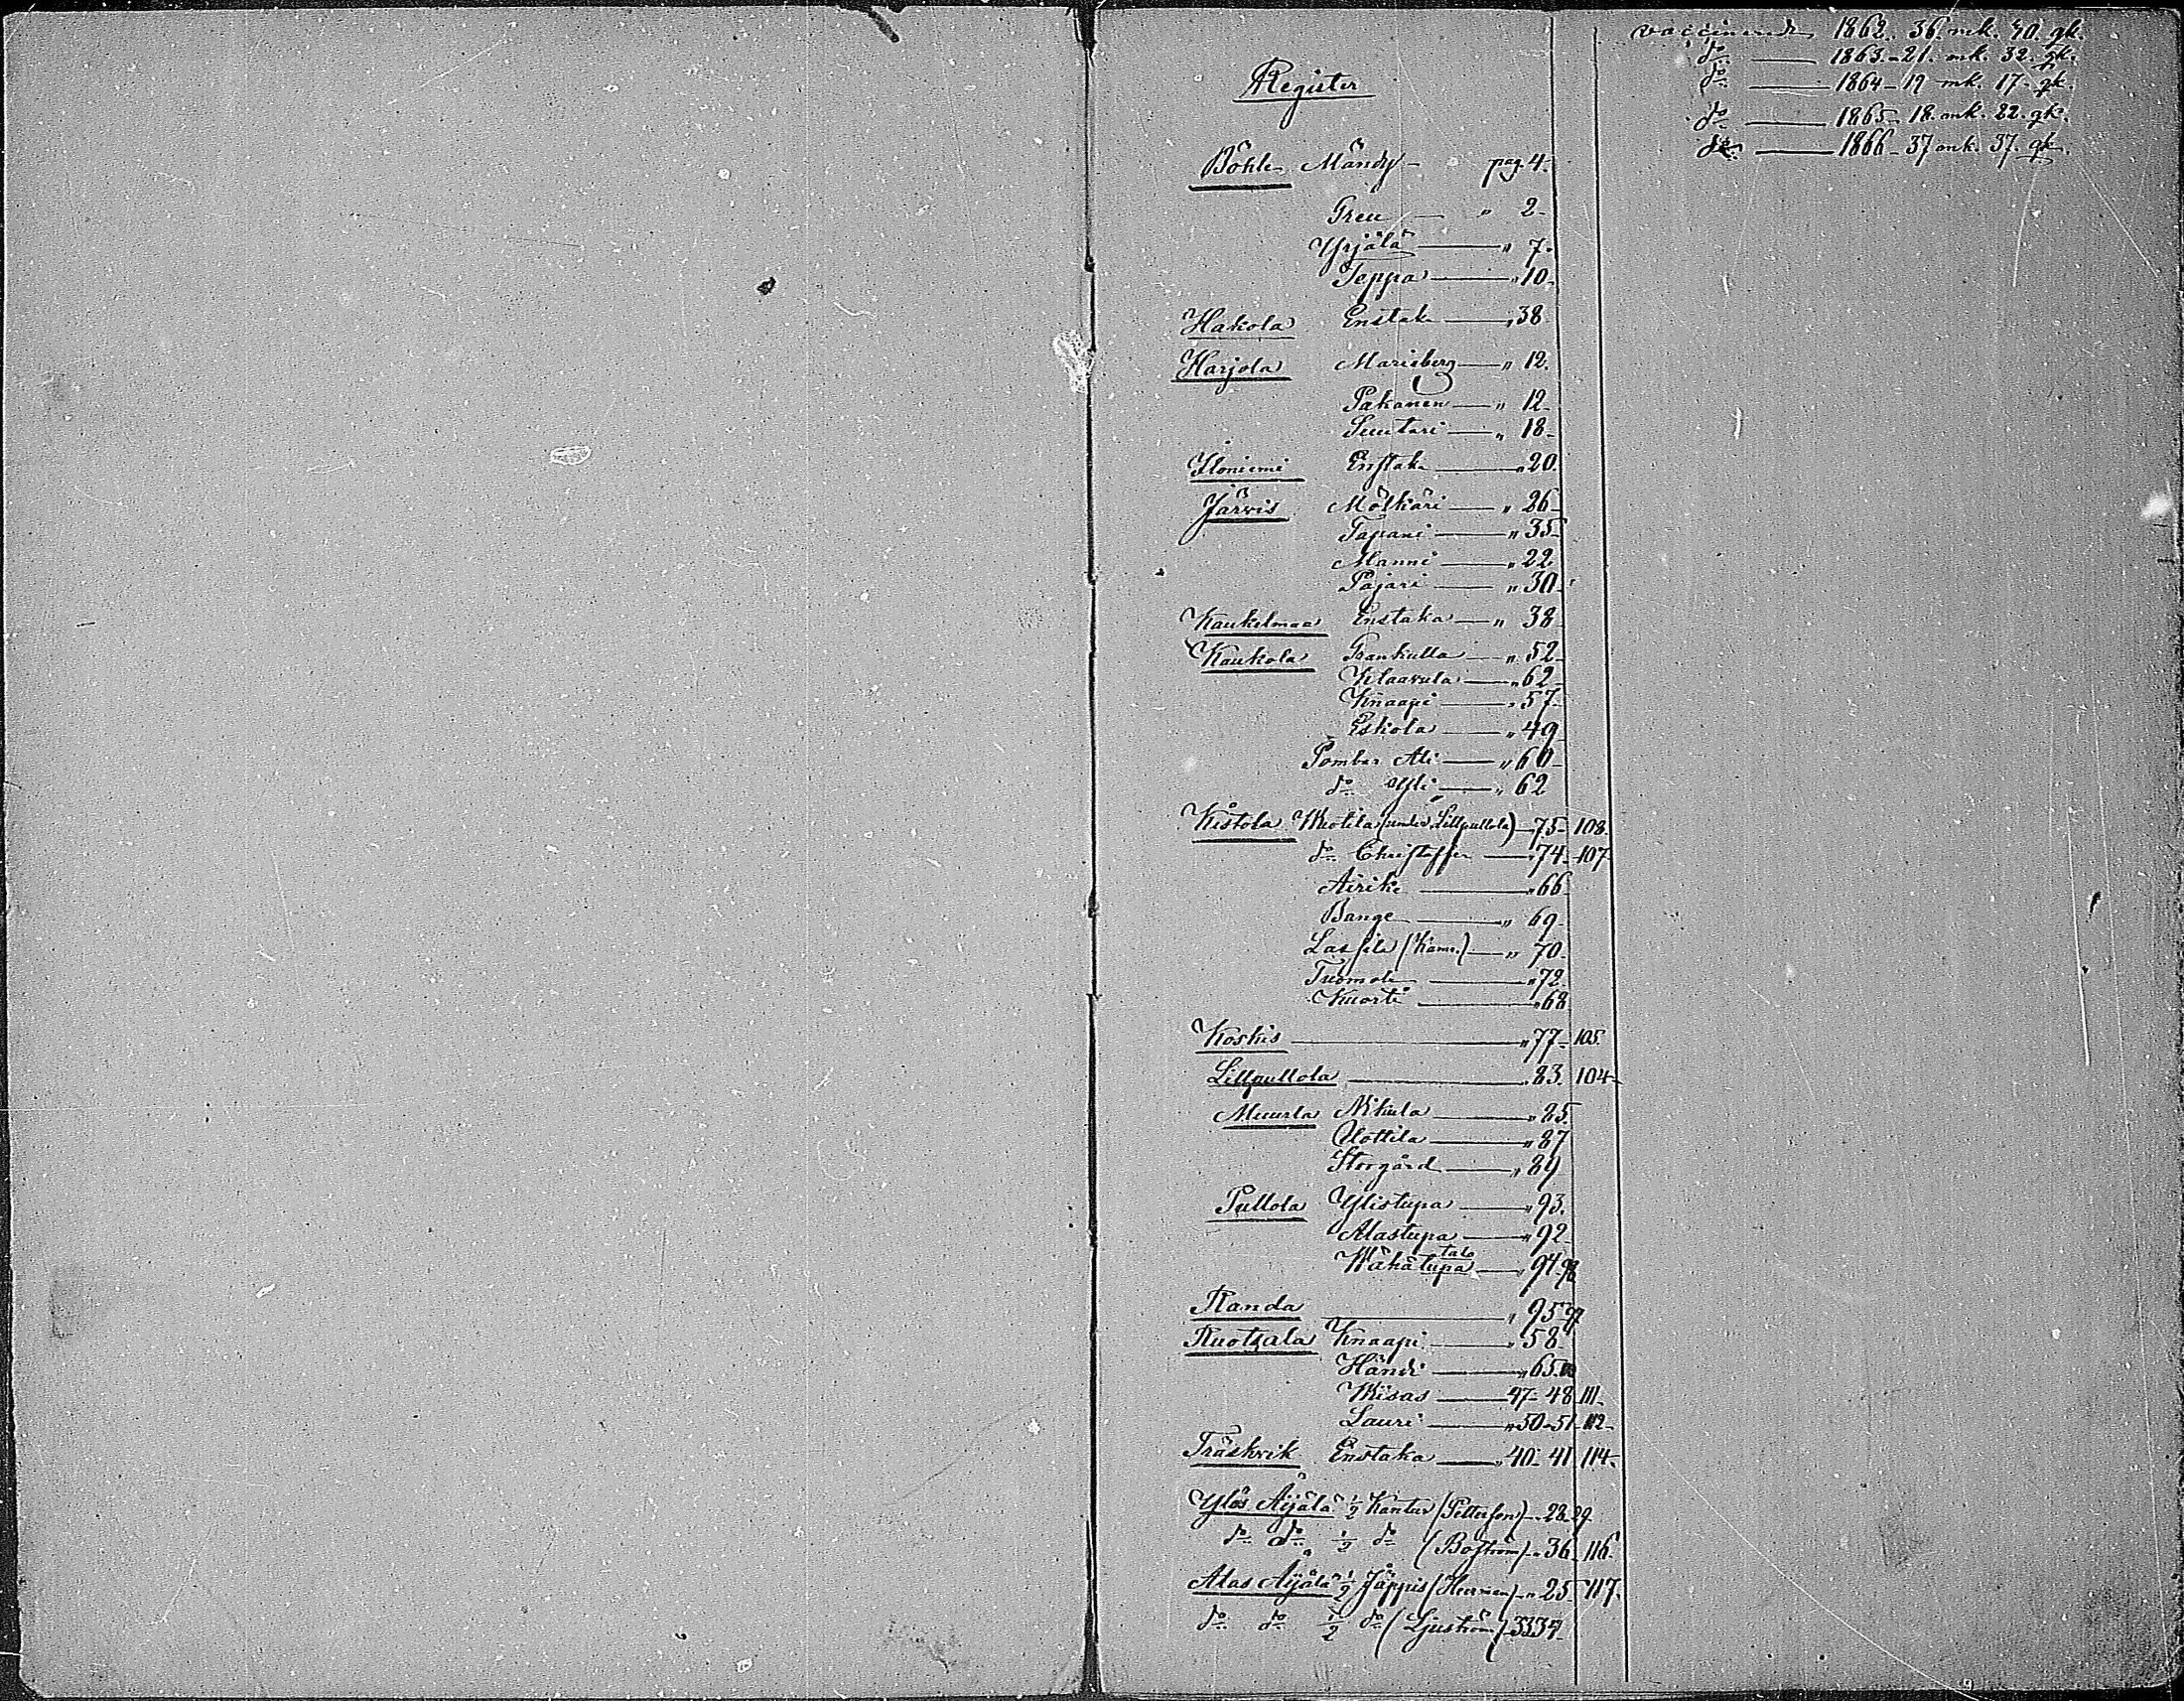 Register
Böhle Mändy pag. 4.
Greu — " 2-
Yrjälä — " 7.
Seppä — " 10.
Hakola Enstaka — " 38
Harjola Marieberg — " 12.
Pakanen — " 12-
Suutari — " 18-
Iloniemi Enstaka — " 20.
Järvis Mölkäri — " 26-
Tapani — " 35-
Manni — " 22
Pajari — " 30
Kaukelmaa Enstaka — " 38
Kaukola Grankulla — " 52-
Klaavula — " 62-
Knaapi — " 57-
Eskola — " 49
Pombar Ali — " 60-
do Yli — " 62
Kistola Wuotila (under Lillpullola) — 75- 108.
do Christoffer — " 74- 107
Airiki — " 66
Bange — " 69-
Lassila — " 70-
Tuomola — " 72
Kuorti — " 68
Koskis — " 77- 105.
Lillpullola — " 83. 104-
Muurla Nikula — " 85.
Uottila — " 87
Storgård — " 89
Pullola Ylistupa — " 93.
Alastupa — " 92
talo
Wähätupa — " 94- 98
Randa — " 95- 97
Ruotsala Knaapi — " 58-
Händi — " 65.
Wisas — 47- 48 111-
Lauri — " 50-51 112-
Träskvik Enstaka — " 40- 41 114-
Ylös Äijälä ½ Kantur (Petterson) — 28-29.
do do ½ do (Boström) — " 36- 116.
Alas Äijälä ½ Jäppis — " 25- 117.
do do ½ do (Ljuström) 33 34-
vaccinerade 1862. 36. mk. 40. qk.
do — 1863.- 21. mk. 32. qk.
do — 1864- 19 mk. 17- qk.
do — 1865- 18. mk. 22. qk.
do — 1866- 37 mk. 37. qk.